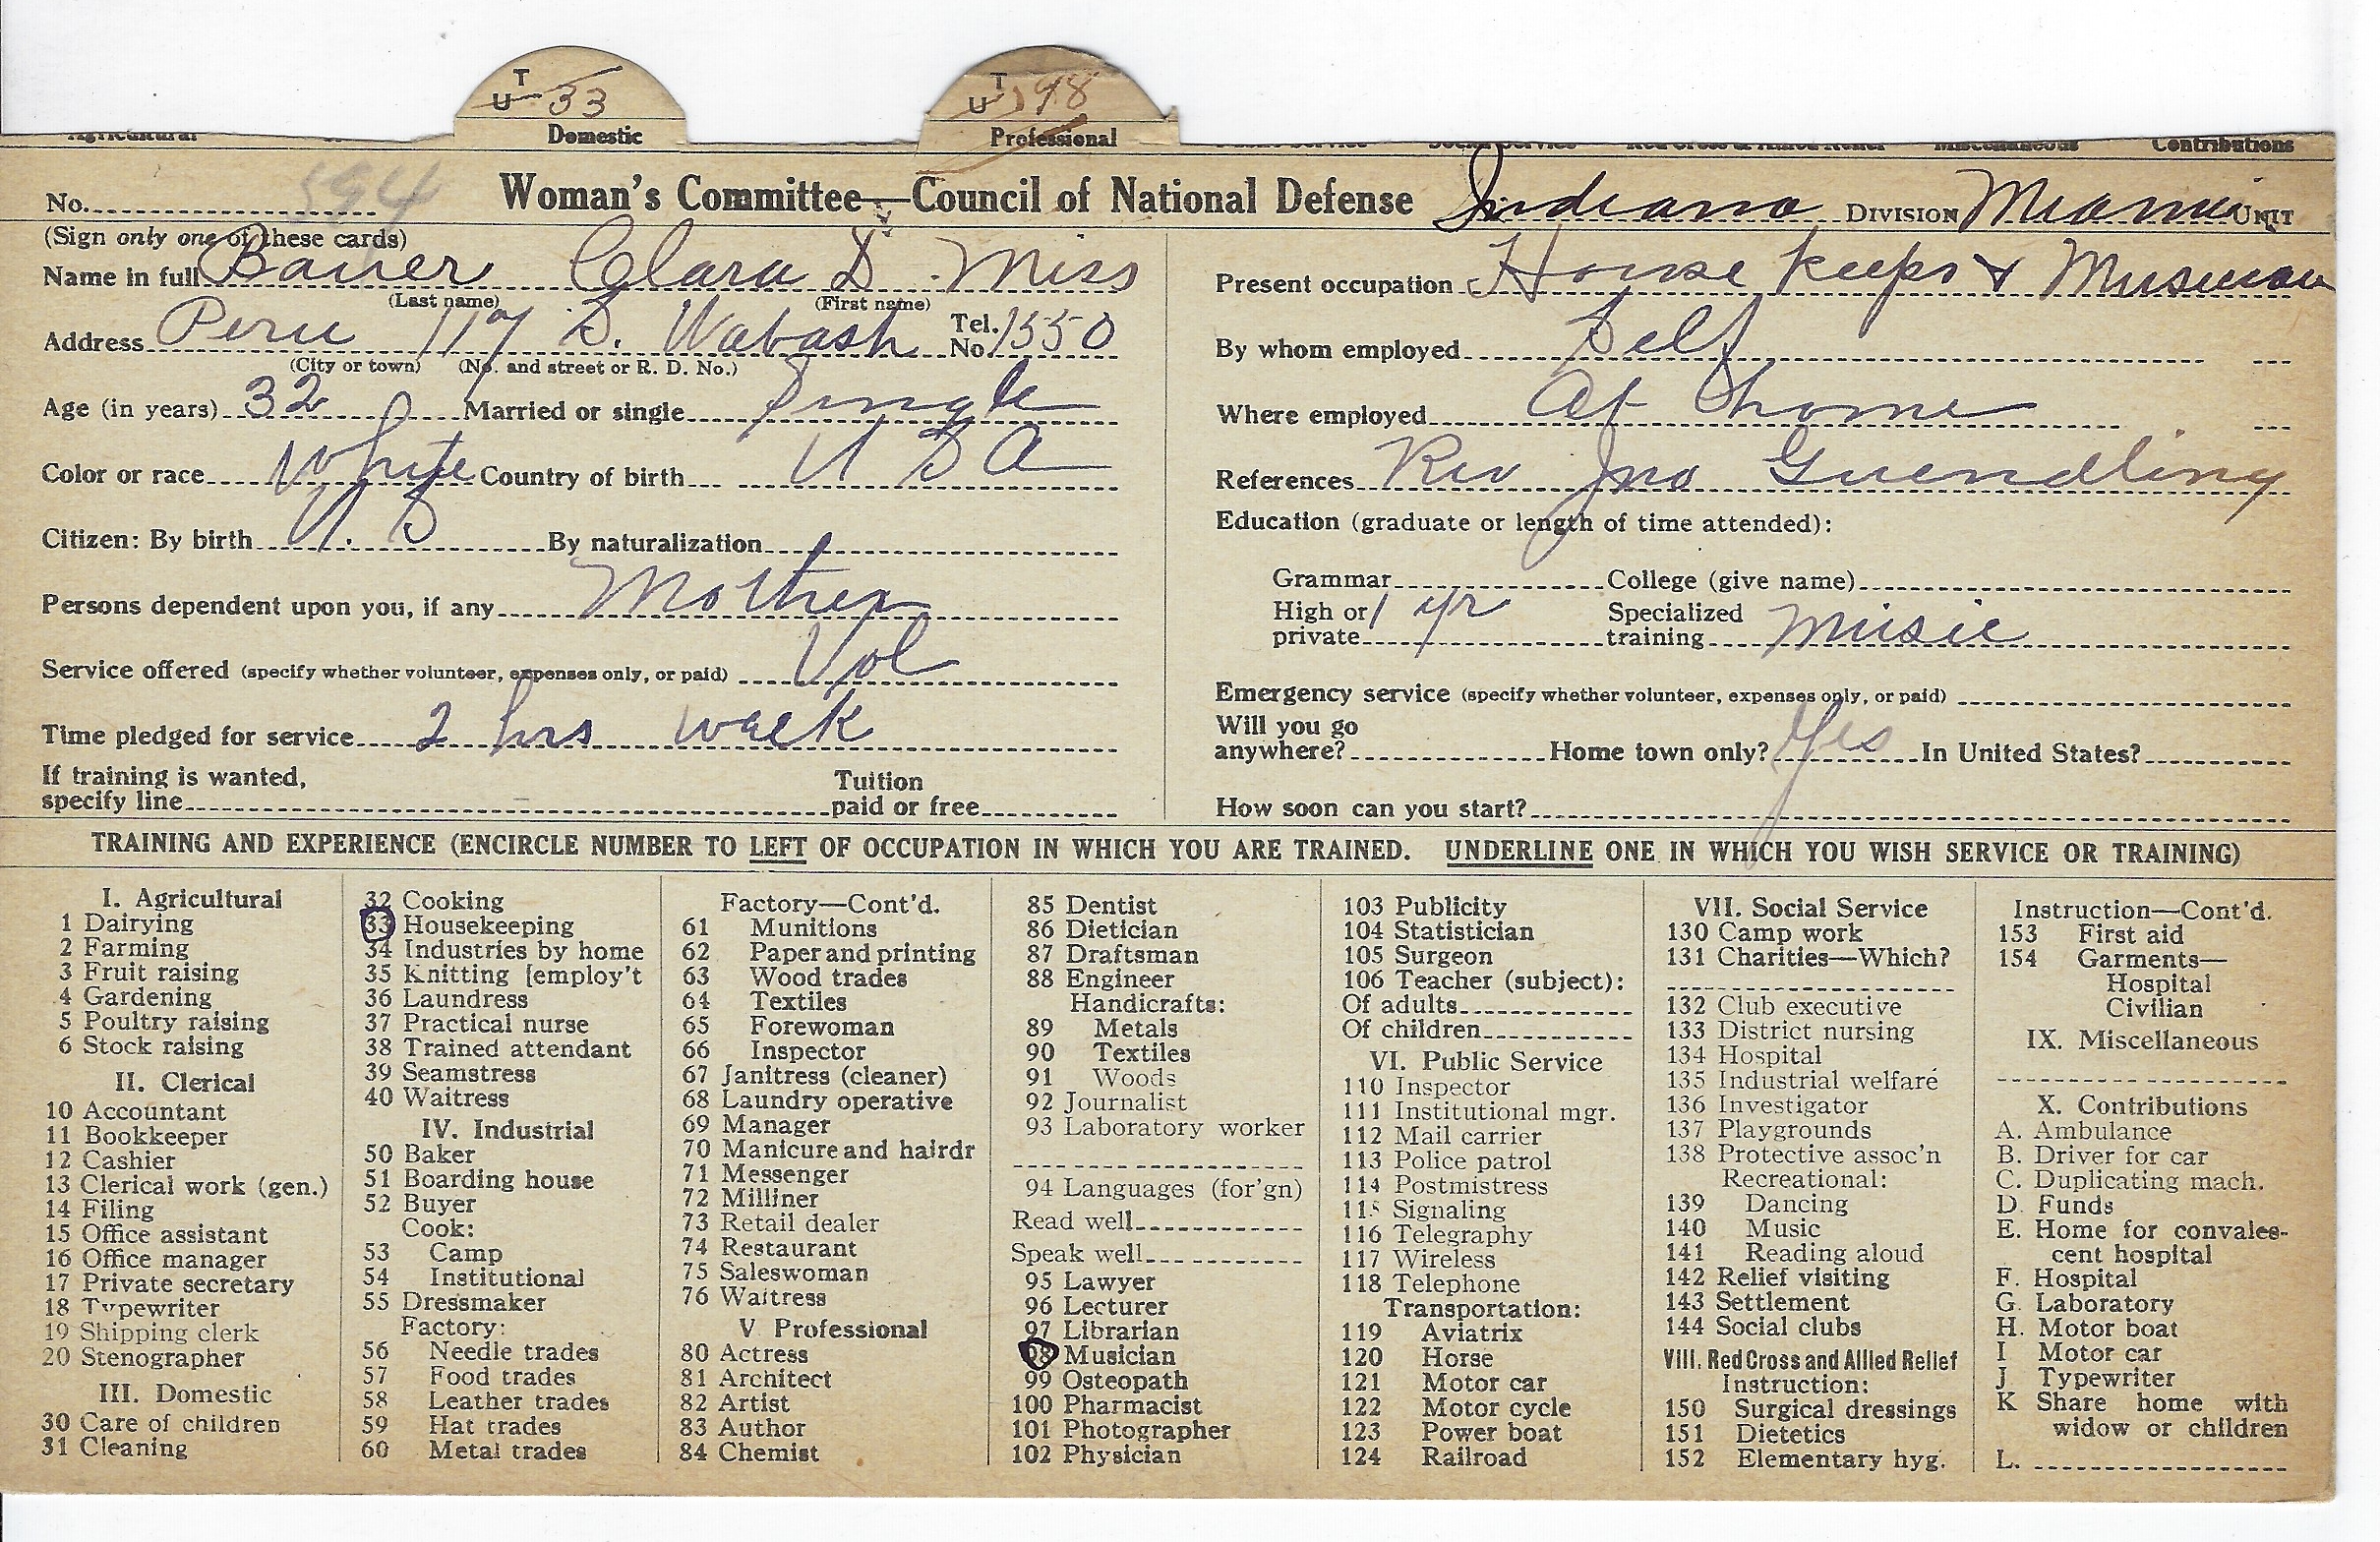 T
U 33
T
U 98
Domestic
Professional
Contributions
No. 594
Woman's Committee—Council of National Defense Indiana DIVISION Miami UNIT
(Sign only one of these cards)
Name in full Bauer Clara D. Miss
(Last name) (First name)
Address Peru 117 S. Wabash Tel. No. 1550
(City or town) (No. and street or R. D. No.)
Age (in years) 32 Married or single Single
Color or race White Country of birth U S A
Citizen: By birth U. S By naturalization
Persons dependent upon you, if any Mother
Service offered (specify whether volunteer, expenses only, or paid) Vol
Time pledged for service 2 hrs week
If training is wanted,
specify line
Tuition
paid or free
Present occupation House keeps & Musician
By whom employed Self
Where employed At home
References Rev Jno Guendling
Education (graduate or length of time attended):
Grammar College (give name)
High or private 1 yr Specialized training Music
Emergency service (specify whether volunteer, expenses only, or paid)
Will you go
anywhere? Home town only? Yes In United States?
How soon can you start?
TRAINING AND EXPERIENCE (ENCIRCLE NUMBER TO LEFT OF OCCUPATION IN WHICH YOU ARE TRAINED. UNDERLINE ONE IN WHICH YOU WISH SERVICE OR TRAINING)
I. Agricultural
1 Dairying
2 Farming
3 Fruit raising
4 Gardening
5 Poultry raising
6 Stock raising
II. Clerical
10 Accountant
11 Bookkeeper
12 Cashier
13 Clerical work (gen.)
14 Filing
15 Office assistant
16 Office manager
17 Private secretary
18 Typewriter
19 Shipping clerk
20 Stenographer
III. Domestic
30 Care of children
31 Cleaning
32 Cooking
33 Housekeeping
34 Industries by home
35 Knitting [employ't
36 Laundress
37 Practical nurse
38 Trained attendant
39 Seamstress
40 Waitress
IV. Industrial
50 Baker
51 Boarding house
52 Buyer
Cook:
53 Camp
54 Institutional
55 Dressmaker
Factory:
56 Needle trades
57 Food trades
58 Leather trades
59 Hat trades
60 Metal trades
Factory—Cont'd.
61 Munitions
62 Paper and printing
63 Wood trades
64 Textiles
65 Forewoman
66 Inspector
67 Janitress (cleaner)
68 Laundry operative
69 Manager
70 Manicure and hairdr
71 Messenger
72 Milliner
73 Retail dealer
74 Restaurant
75 Saleswoman
76 Waitress
V Professional
80 Actress
81 Architect
82 Artist
83 Author
84 Chemist
85 Dentist
86 Dietician
87 Draftsman
88 Engineer
Handicrafts:
89 Metals
90 Textiles
91 Woods
92 Journalist
93 Laboratory worker
94 Languages (for'gn)
Read well
Speak well
95 Lawyer
96 Lecturer
97 Librarian
98 Musician
99 Osteopath
100 Pharmacist
101 Photographer
102 Physician
103 Publicity
104 Statistician
105 Surgeon
106 Teacher (subject):
Of adults
Of children
VI. Public Service
110 Inspector
111 Institutional mgr.
112 Mail carrier
113 Police patrol
114 Postmistress
115 Signaling
116 Telegraphy
117 Wireless
118 Telephone
Transportation:
119 Aviatrix
120 Horse
121 Motor car
122 Motor cycle
123 Power boat
124 Railroad
VII. Social Service
130 Camp work
131 Charities—Which?
132 Club executive
133 District nursing
134 Hospital
135 Industrial welfare
136 Investigator
137 Playgrounds
138 Protective assoc'n
Recreational:
139 Dancing
140 Music
141 Reading aloud
142 Relief visiting
143 Settlement
144 Social clubs
VIII. Red Cross and Allied Relief
Instruction:
150 Surgical dressings
151 Dietetics
152 Elementary hyg.
Instruction—Cont'd.
153 First aid
154 Garments—
Hospital
Civilian
IX. Miscellaneous
X. Contributions
A. Ambulance
B. Driver for car
C. Duplicating mach.
D. Funds
E. Home for convales-
cent hospital
F. Hospital
G. Laboratory
H. Motor boat
I Motor car
J. Typewriter
K Share home with
widow or children
L.